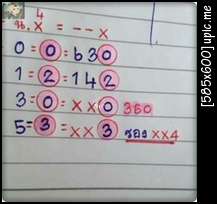 4
น. x = - - x
0 = 0 = 630
1 = 2 = 142
3 = 0 = x x 0 360
5 = 3 = x x 3 รอง xx4
[585x600] upic.me